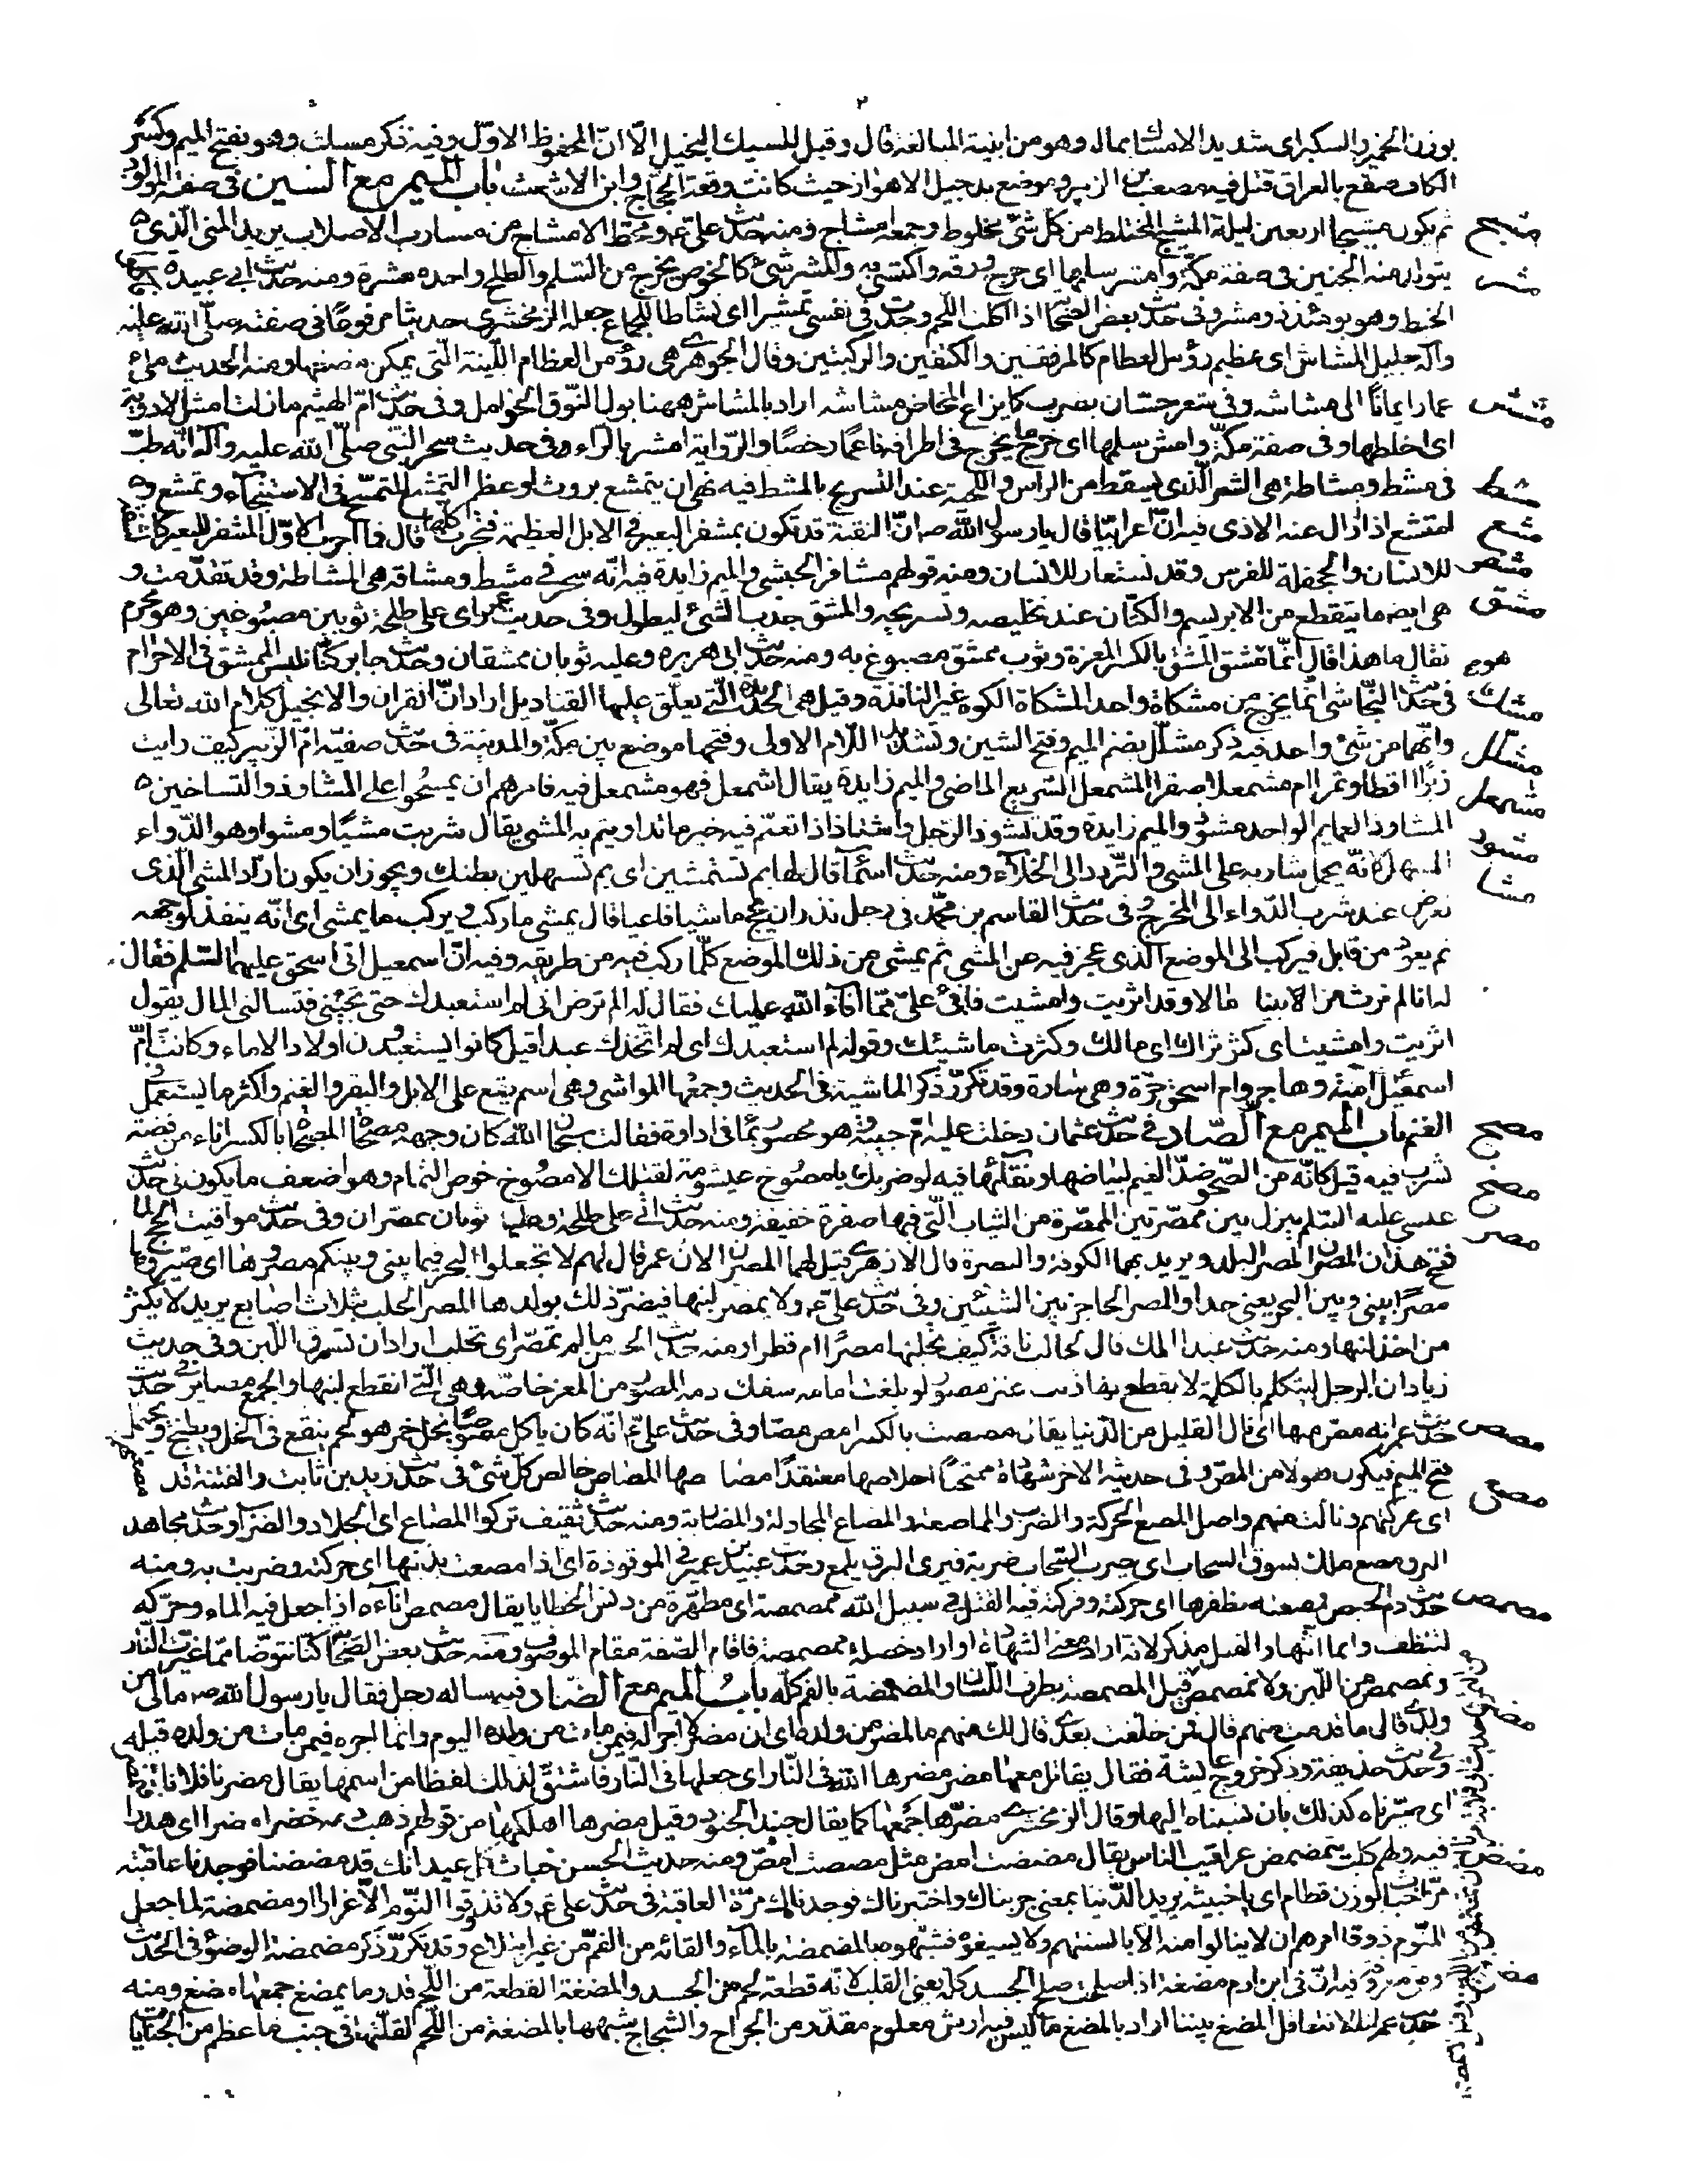 بوزن الخمير والسكير اى شديد الامساك بماله وهو من ابنية المبالغة قال وقيل المسيك البخيل الا ان المحفوظ الاول وفيه ذكر مسكن وهو بفتح الميم وكسر
الكاف صقع بالعراق قتل فيه مصعب بن الزبير وموضع بدجيل الاهواز حيث كانت وقعة الحجاج وابن الاشعث باب الميم مع الشين فى صفة المولود
مشج ثم يكون مشيجا اربعين ليلة المشيج المختلط من كل شئ مخلوط وجمعه امشاج ومنه حديث على ع ومحط الامشاج من مسارب الاصلاب يريد المنى الذى
مشر يتولد منه الجنين فى صفة مكة وامشر سلمها اى خرج ورقه واكتسى به والمشر شئ كالخوص يخرج من السلم والطلح واحده مشرة ومنه حديث ابى عبيدة
الخبط وهو يومئذ ذو مشر وفى حديث بعض الصحابة اذا اكلت اللحم وجدت فى نفسى تمشيرا اى نشاطا للجماع جعله الزمخشرى حديثا مرفوعا فى صفته صلى الله عليه
واله جليل المشاش اى عظيم رؤس العظام كالمرفقين والكتفين والركبتين وقال الجوهرى هى رؤس العظام اللينة التى يمكن مضغها ومنه الحديث ملئ
مشش عمار ايمانا الى مشاشه وفى شعر حسان بضرب كايزاع المخاض مشاشه اراد بالمشاش ههنا بول النوق الحوامل وفى حديث ام الهيثم ما زلت امش الادوية
اى اخلطها وفى صفة مكة وامش سلمها اى خرج ما يخرج فى اطرافه ناعما رخصا والرواية امشر بالراء وفى حديث سحر النبى صلى الله عليه وآله انه طب
مشط فى مشط ومشاطة هى الشعر الذى يسقط من الراس واللحية عند التسريح بالمشط فيه نهى ان يتمشع بروث او عظم التمشع التمسح فى الاستنجاء وتمشع و
مشع امتشع اذا زال عنه الاذى فيه ان اعرابيا قال يا رسول الله ص ان النقبة قد تكون بمشفر البعير فى الابل العظيمة فتجرب كلها قال فما اجرب الاول المشفر للبعير كالشفة
مشفر للانسان والجحفلة للفرس وقد تستعار للانسان ومنه قولهم مشافر الحبشى والميم زايدة فيه انه سحر فى مشط ومشاقة هى المشاطة وقد تقدمت و
مشق هى ايضا ما يتقطع من الابريسم والكتان عند تخليصه وتسريحه والمشق جذب الشئ ليطول وفى حديث عمر راى على طلحة ثوبين مصبوغين وهو محرم
فقال ما هذا قال انما هو مشق المشق بالكسر المغرة وثوب ممشق مصبوغ به ومنه حديث ابى هريرة وعليه ثوبان ممشقان وحديث جابر كنا نلبس الممشق فى الاحرام
مشك فى حديث النجاشى انما يخرج من مشكاة واحد المشكاة الكوة غير النافذة وقيل هى الحديدة التى يعلق عليها القناديل اراد ان القران والانجيل كلام الله تعالى
مشلل وانهما من شئ واحد فيه ذكر مشلل بضم الميم وفتح الشين وتشديد اللام الاولى وفتحها موضع بين مكة والمدينة فى حديث صفية ام الزبير كيف رايت
مشمعل زبرا اقطا وتمرا ام مشمعلا صقرا المشمعل السريع الماضى والميم زايدة يقال اشمعل فهو مشمعل فيه فامرهم ان يمسحوا على المشاوذ والتساخين
مشوذ المشاوذ العمايم الواحد مشوذ والميم زايدة وقد تشوذ الرجل واشتاذ اذا تعمم فيه خير ما تداويتم به المشى يقال شربت مشيا ومشوا وهو الدواء
مشا المسهل لانه يحمل شاربه على المشى والتردد الى الخلاء ومنه حديث اسماء قال لها بم تستمشين اى بم تسهلين بطنك ويجوز ان يكون اراد المشى الذى
يعرض عند شرب الدواء الى المخرج وفى حديث القاسم بن محمد فى رجل نذر ان يحج ماشيا فاعيا قال يمشى ما ركب ويركب ما يمشى اى انه ينفذ لوجهه
ثم يعود من قابل فيركب الى الموضع الذى عجز فيه عن المشى ثم يمشى من ذلك الموضع كلما ركب فيه من طريقه وفيه ان اسمعيل اتى اسحق عليهما السلم فقال
له انا لم نرث من ابينا مالا وقد اثريت وامشيت فافئ على مما افاء الله عليك فقال له الم ترض انى لم استعبدك حتى تجيئنى فتسالنى المال يقول
اثريت وامشيت اى كثر ثراك اى مالك وكثرت ماشيتك وقوله لم استعبدك اى لم اتخذك عبدا قيل كانوا يستعبدون اولاد الاماء وكانت ام
اسمعيل امة وهى هاجر وام اسحق حرة وهى سارة وقد تكرر ذكر الماشية فى الحديث وجمعها المواشى وهى اسم يقع على الابل والبقر والغنم واكثر ما يستعمل
مصح الغنم باب الميم مع الصاد فى حديث عثمان دخلت عليه ام حبيبة وهو محصور بماء فى اداوة فقالت سبحان الله كان وجهه مصحاة المصحاة بالكسر اناء من فضة
مصخ يشرب فيه قيل كانه من الصحو ضد الغيم لبياضها ونقائها فيه لو ضربك بامصوخ عيشومة لقتلك الامصوخ خوص الثمام وهو اضعف ما يكون فى حديث
مصر عيسى عليه السلم ينزل بين ممصرتين الممصرة من الثياب التى فيها صفرة خفيفة ومنه حديث اتى على طلحة وعليه ثوبان ممصران وفى حديث مواقيت الحج لما
فتح هذان المصران المصر البلد ويريد بهما الكوفة والبصرة قال الازهرى قيل لهما المصران لان عمر قال لهم لا تجعلوا البحر فيما بينى وبينكم مصروها اى صيروها
مصرا بينى وبين البحر يعنى حدا والمصر الحاجز بين الشيئين وفى حديث على ع ولا يمصر لبنها فيضر ذلك بولدها المصر الحلب بثلاث اصابع يريد لا يكثر
من اخذ لبنها ومنه حديث عبد الملك قال لحالب ناقة كيف تحلبها مصرا ام فطرا ومنه حديث الحسن ما لم تمصر اى تحلب اراد ان تسرق اللبن وفى حديث
زياد ان الرجل ليتكلم بالكلمة لا يقطع بها ذنب عنز مصور لو بلغت امامه سفك دمه المصور من المعز خاصة وهى التى انقطع لبنها والجمع مصاير فى حديث
مصص حديث عمر انه مص منها اى نال القليل من الدنيا يقال مصصت بالكسر امص مصا وفى حديث على ع انه كان ياكل مصوصا بخل خمر هو لحم ينقع فى الخل ويطبخ ويحتمل
فتح الميم فيكون فعولا من المص وفى حديثه الاخر شهادة ممتحنا اخلاصها معتقدا مصاصها المصاص خالص كل شئ فى حديث زيد بن ثابت والفتنة قد
مصع اى عركتهم ونالت منهم واصل المصع الحركة والضرب والمماصعة والمصاع المجادلة والمضاربة ومنه حديث ثقيف تركوا المصاع اى الجلاد والضراب وحديث مجاهد
البرق مصع ملك يسوق السحاب اى يضرب السحاب ضربة فيرى البرق يلمع وحديث عبيد بن عمير فى الموقوذة اى اذا مصعت بذنبها اى حركته وضربت به ومنه
مصمص حديث دم الحيض فمصعته بظفرها اى حركته وفركته فيه القتل فى سبيل الله ممصمصة اى مطهرة من دنس الخطايا يقال مصمص اناءه اذا جعل فيه الماء وحركه
لتنظف وانما انثها والقتل مذكر لانه اراد معنى الشهادة او اراد خصلة ممصمصة فاقام الصفة مقام الموصوف ومنه حديث بعض الصحابة كنا نتوضا مما غيرت النار
ونمصمص من اللبن ولا نمصمص قيل المصمصة بطرف اللسان والمضمضة بالفم كله باب الميم مع الضاد فيه ساله رجل فقال يا رسول الله ص مالى من
مضر ولدى قال ما قدمت منهم قال فمن خلفت بعدى قال لك منهم ما لمضر من ولده اى ان مضر لا اجر له فيمن مات من ولده اليوم وانما اجره فيمن مات من ولده قبله
وفى حديث حذيفة وذكر خروج عايشة فقال يقاتل معها مضر مضرها الله فى النار اى جعلها فى النار فاشتق لذلك لفظا من اسمها يقال مضرنا فلانا فتمضر
اى صيرناه كذلك بان نسبناه اليها وقال الزمخشرى مضرها جمعها كما يقال جند الجنود وقيل مضرها اهلكها من قولهم ذهب دمه خضرا مضرا اى هدرا
مضض فيه ولهم كلب يتمضمض عراقيب الناس يقال مضضت امض مثل مصصت امص ومنه حديث الحسن خباث كل عيدانك قد مضضنا فوجدنا عاقبته
مرا خباث بوزن قطام اى يا خبيثة يريد الدنيا بمعنى جربناك واختبرناك فوجدناك مرة العاقبة فى حديث على ع ولا تذوقوا النوم الا غرارا او مضمضة لما جعل
للنوم ذوقا امرهم ان لا ينالوا منه الا بالسنتهم ولا يسيغوه فشبهه بالمضمضة بالماء والقائه من الفم من غير ابتلاع وقد تكرر ذكر مضمضة الوضوء فى الحديث
مضغ فيه ان فى ابن ادم مضغة اذا صلحت صلح الجسد كله يعنى القلب لانه قطعة لحم من الجسد والمضغة القطعة من اللحم قدر ما يمضغ جمعها مضغ ومنه
حديث عمر انا لا نتعاقل المضغ بيننا اراد بالمضغ ما ليس فيه ارش معلوم مقدر من الجراح والشجاج شبهها بالمضغة من اللحم لقلتها فى جنب ما عظم من الجنايات